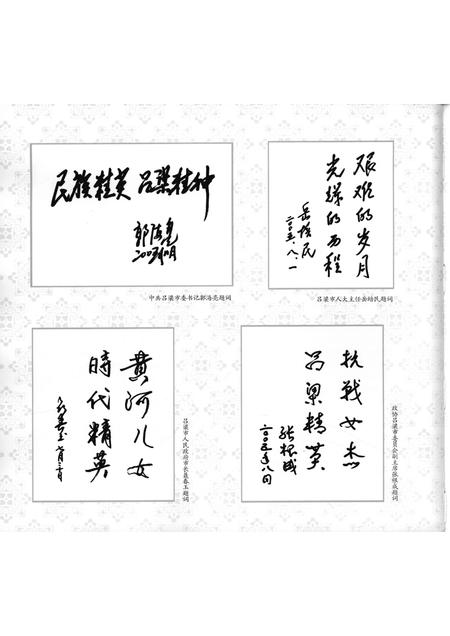 民族精英 吕梁精神
郭海亮
中共吕梁市委书记郭海亮题词
艰难的岁月
光辉的历程
岳培民
二〇〇五.八.一
吕梁市人大主任岳培民题词
黄河儿女
時代精英
吕梁市人民政府市长聂春玉题词
抗战女杰
吕梁精英
张根成
二〇〇五年八月
政协吕梁市委员会副主席张根成题词